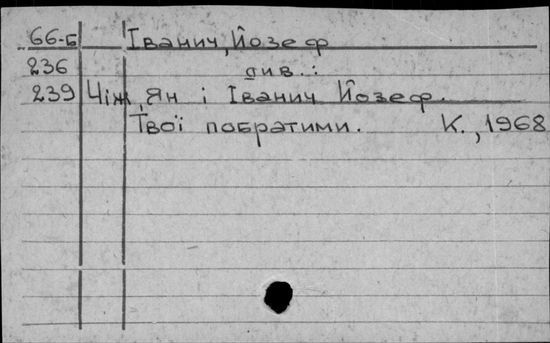 66-Б Іванич, Йозеф
236 див.:
239 Чіж, Ян і Іванич Йозеф.
Твої побратими. К., 1968